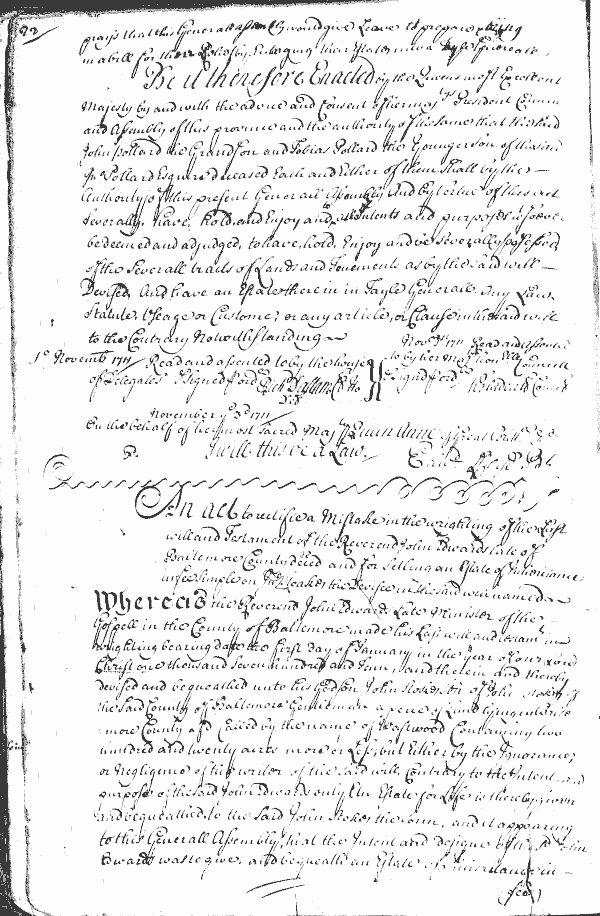 22/
prays that this Generall Assembly would give Leave to prepare & bring
in a bill for their Reliefs by Enlarging their Estates into a
Be it therefore Enacted by the Queens most Excellent
Majesty by and with the advice and Consent of her majtys President Councill
and Assembly of this province and the authority of the same that the said
John Pollard the Grandson and Tobias Pollard the Younger son of the said
Pollard Esquire deceased Each and Either of them Shall by the
Authority of this present Generall Assembly And by Vertue of this act
severally have, hold, and Enjoy and to all intents and purposes whatsoever
be deemed and adjudged, to have, hold, Enjoy and be severally possessed
of the Severall tracts of Lands and Tenements as by the said will
Devised And have an Estate therein in Tayle Generall any Law
Statute, Useage or Custome, or any article, or Clause in the said will
to the Contrary Notwithstanding
1o Novembr 1711 Read and assented to by the house
of Delegates Signed for
Novr 3d 1711 Read and assented
to by her Majtys honble Councill
Signed for
November ye 3d 1711
On the behalf of her most Sacred Majty Queen Anne of Great Britt &c
I will this be a Law.
An act to rectifie a Mistake in the wrighting of the Last
will and Testament of the Reverend John Edwards late of
Baltemore County deced and for Setling an Estate of Inheritance
in fee simple on the Devisee in the said will named
Whereas the Reverend John Edwards Late Minister of the
Gospell in the County of Baltemore made his Last will and testamt in
wrighting bearing date the first day of January in the year of our Lord
Christ one thousand Seven hundred and and therein and thereby
devised and bequeathed unto his Godson John Stokes son of John Stokes of
the said County of Baltemore Gentleman a peice of Land lying in Balte
more County and Called by the name of Eastwood Containing two
hundred and twenty acres more or Less, but Either by the Ignorance,
or Negligence of the writer of the said will, Contrary to the Intent and
purpose of the said John Edwards only An Estate for Life is thereby given
and bequeathed to the Said John Stokes the sonn, and it appearing
to this Generall Assembly, that the Intent and designe of the sd John
Edwards was to give, and bequeath an Estate of Inheritance in
(fee)